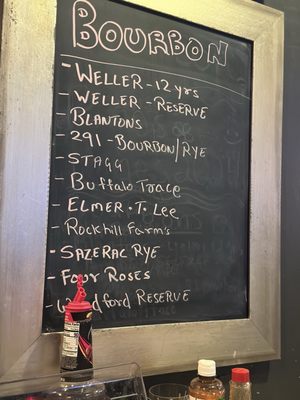 BOURBON
- WELLER - 12 yrs
- WELLER - RESERVE
- BLANTONS
- 291 - BOURBON/RYE
- STAGG
- Buffalo Trace
- ELMER • T. Lee
- Rockhill Farm's
- SAZERAC RYE
- Four Roses
- Woodford RESERVE